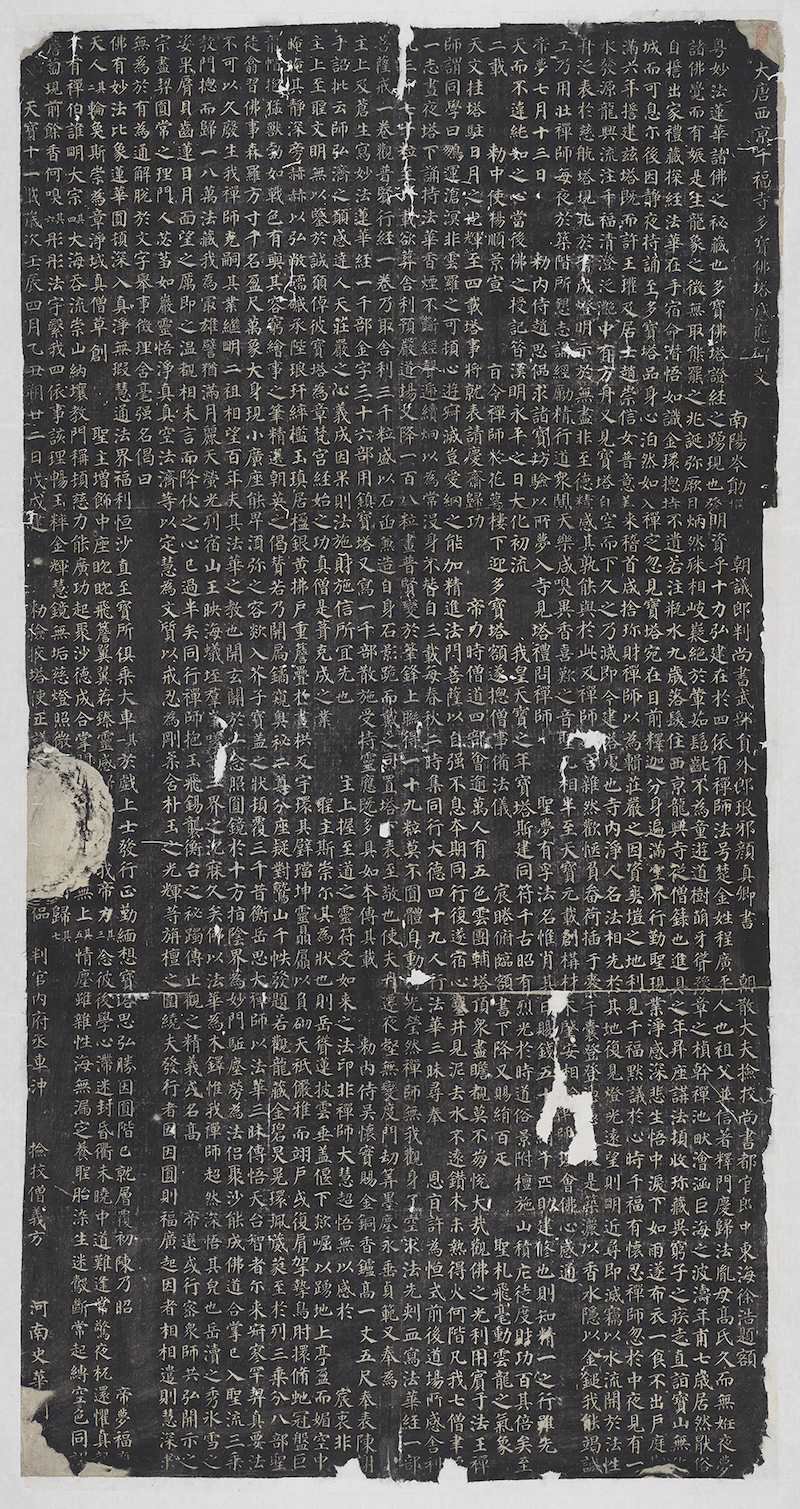 大唐西京千福寺多寶佛塔感應碑文
南陽岑勛 朝議郎判尚書武部員外郎琅邪顏真卿書 朝散大夫撿挍尚書都官郎中東海徐浩題額
粵妙法蓮華諸佛之秘藏也多寶佛塔證經之踴現也發明資乎十力弘建在於四依有禪師法号楚金姓程廣平人也祖父並信著釋門慶歸法胤母高氏久而無姙夜夢
諸佛覺而有娠是生龍象之徵無取熊羆之兆誕弥厥月炳然殊相岐嶷絕於葷茹髫齔不為童遊道樹萌牙聳豫章之楨幹禪池畎澮涵巨海之波濤年甫七歲居然猒俗
自誓出家禮藏探經法華在手宿命潛悟如識金環揔持不遺若注瓶水九歲落髮住西京龍興寺從僧籙也進具之年昇座講法頓收珍藏異窮子之疾走直詣寶山無
城而可息尒後因静夜持誦至多寶塔品身心泊然如入禪定忽見寶塔宛在目前釋迦分身遍滿空界行勤聖現業淨感深悲生悟中淚下如雨遂布衣一食不出戶庭
滿六年誓建茲塔既而許王瓘及居士趙崇信女普意善來稽首咸捨珎財禪師以為輯莊嚴之因資爽塏之地利見千福默議於心時千福有懷忍禪師忽於中夜見有一
水發源龍興流注千福清澄泛灔中有方舟又見寶塔自空而下久之乃滅即今建塔處也寺內淨人名法相先於其地復見燈光遠望則明近尋即滅竊以水流開於法性
舟泛表於慈航塔現兆於有成燈明示於無盡非至德精感其孰能與於此及禪師建言雜然歡愜負畚荷插于橐于囊登登是築灑以香水隱以金鎚我能竭誠
工乃用壯禪師每夜於築階所懇志誦經勵精行道衆聞天樂咸嗅異香喜歎之音聖凢相半至天寶元載創構材木肇安相輪禪師理會佛心感通
帝夢七月十三日 勑內侍趙思偘求諸寶坊驗以所夢入寺見塔禮問禪師 聖夢有孚法名惟肖其日賜錢五十萬絹千匹助建修也則知精一之行雖先
天而不違純如之心當後佛之授記昔漢明永平之日大化初流 我皇天寶之年寶塔斯建同符千古昭有烈光於時道俗景附檀施山積庀徒度財功百其倍矣至
二載 勑中使楊順景宣 旨令禪師於花萼樓下迎多寶塔額遂揔僧事備法儀 宸睠俯臨額書下降又賜絹百疋 聖札飛毫動雲龍之氣象
天文挂塔駐日月之光輝至四載塔事將就表請慶齋歸功 帝力時僧道四部會逾萬人有五色雲團輔塔頂衆盡瞻覩莫不崩悅大哉觀佛之光利用賓于法王禪
師謂同學曰鵬運滄溟非雲羅之可頓心遊寂滅豈愛網之能加精進法門菩薩以自强不息本期同行復遂宿心鑿井見泥去水不遠鑽木未熱得火何階凡我七僧聿
一志晝夜塔下誦持法華香煙不斷經聲遞續炯以為常没身不替自三載每春秋二時集同行大德四十九人行法華三昧尋奉 恩旨許為恒式前後道場所感舍利
凢三千七十粒至六載欲葬舍利預嚴道場又降一百八粒畫普賢變於筆鋒上聯得一十九粒莫不圓體自動浮光瑩然禪師無我觀身了空求法先刺血寫法華經一部
菩薩戒一卷觀普賢行經一卷乃取舍利三千粒盛以石函兼造自身石影跪而戴之同置塔下表至敬也使夫舟遷夜壑無變度門劫筭墨塵永垂貞範又奉為
主上及蒼生寫妙法蓮華經一千部金字三十六部用鎮寶塔又寫一千部散施受持靈應既多具如本傳其載 勑內侍吳懷實賜金銅香鑪高一丈五尺奉表陳謝
手詔批云師弘濟之願感達人天莊嚴之心義成因果則法施財施信所宜先也 主上握至道之靈符受如來之法印非禪師大慧超悟無以感於 宸衷非
主上至聖文明無以鑒於誠願倬彼寶塔為章梵宮經始之功真僧是葺克成之業 聖主斯崇尒其為狀也則岳聳蓮披雲垂盖偃下欻崛以踴地上亭盈而媚空中
晻晻其静深旁赫赫以弘敞礝碱承陛琅玕綷檻玉瑱居楹銀黃拂戶重簷疊於畫栱反宇環其璧璫坤靈贔屭以負砌天祇儼雅而翊戶或復肩挐摯鳥肘擐脩虵冠盤巨
龍帽抱猛獸勃如戰色有奭其容窮繪事之筆精選朝英之偈贊若乃開扃鐍窺奥秘二尊分座疑對鷲山千帙發題若觀龍藏金碧炅晃環珮葳蕤至於列三乘分八部聖
徒翕習佛事森羅方寸千名盈尺萬象大身現小廣座能卑須弥之容欻入芥子寶盖之狀頓覆三千昔衡岳思大禪師以法華三昧傳悟天台智者尒來寂寥罕契真要法
不可以久廢生我禪師克嗣其業繼明二祖相望百年夫其法華之教也開玄關於一念照圓鏡於十方指陰界為妙門駈塵勞為法侣聚沙能成佛道合掌已入聖流三乘
教門揔而歸一八萬法藏我為最雄譬猶滿月麗天螢光列宿山王映海蟻垤羣峯嗟乎三界之沈寐久矣佛以法華為木鐸惟我禪師超然深悟其皃也岳瀆之秀冰雪之
姿果脣貝齒蓮目月面望之厲即之温覩相未言而降伏之心已過半矣同行禪師抱玉飛錫襲衡台之秘躅傳止觀之精義或名高 帝選或行密衆師共弘開示之
宗盡契圓常之理門人苾蒭如巖靈悟淨真真空法濟等以定慧為文質以戒忍為剛柔含朴玉之光輝等旃檀之圍繞夫發行者因因圓則福廣起因者相相遣則慧深求
無為於有為通解脫於文字舉事徵理含毫强名偈曰
佛有妙法比象蓮華圓頓深入真淨無瑕慧通法界福利恒沙直至寶所俱乘大車其一於戲上士發行正勤緬想寶塔思弘勝因圓階已就層覆初陳乃昭 帝夢福
天人其二輪奐斯崇為章淨域真僧草創 聖主增飾中座眈眈飛簷翼翼荐臻靈感 我帝力其三念彼後學心滯迷封昏衢未曉中道難逢常驚夜枕還懼真
不有禪伯誰明大宗其四大海吞流崇山納壤教門稱頓慈力能廣功起聚沙德成合掌 無上其五情塵雖雜性海無漏定養聖胎染生迷鷇斷常起縛空色同
薝蔔現前餘香何嗅其六彤彤法宇繄我四依事該理暢玉粹金輝慧鏡無垢慈燈照微 歸其七
天寶十一載歲次壬辰四月乙丑朔廿二日戊戌建 勑撿挍塔使正議 偘 判官內府丞車沖 撿挍僧義方 河南史華